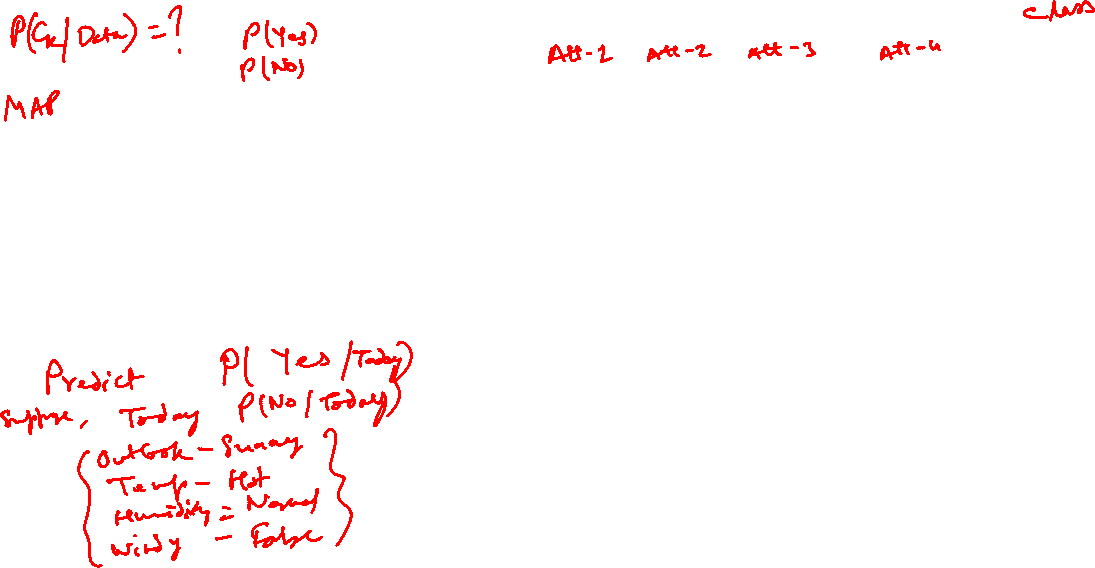 P(Ck/Data) = ?
P(Yes)
P(No)
MAP
Att-1 Att-2 Att-3 Att-4
class
Predict
P(Yes/Today)
P(No/Today)
Suppose, Today
Outlook - Sunny
Temp - Hot
Humidity = Normal
Windy - False